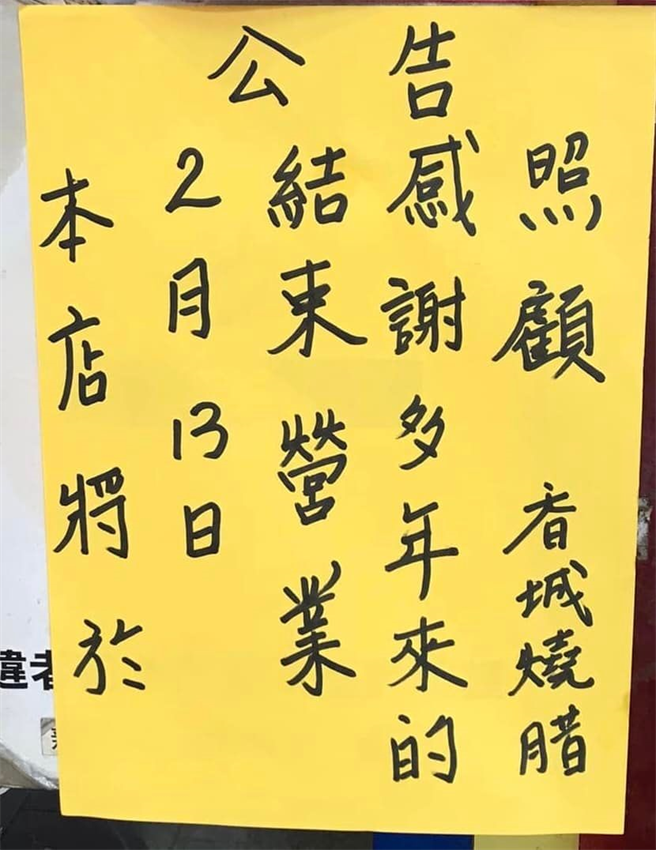 公告
本店將於
2月13日
結束營業
感謝多年來的
照顧 香城燒腊
違者